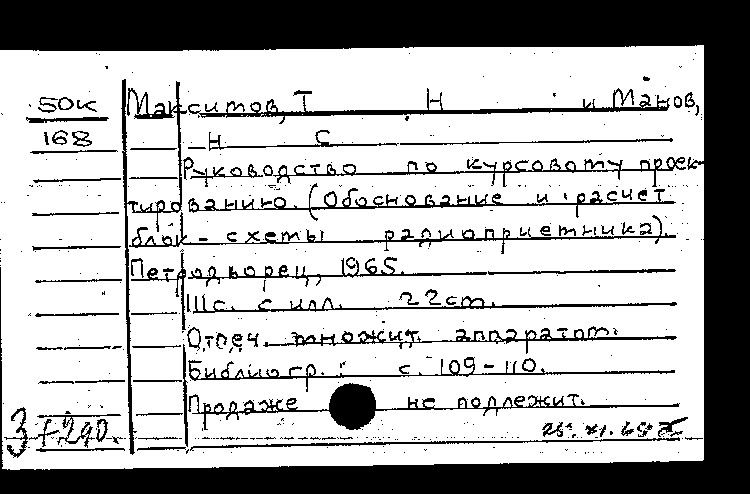 50к Максимов, Т Н и Манов,
168 Н С
Руководство по курсовому проек-
тированию. (Обоснование и расчет
блок-схемы радиоприемника).
Петродворец, 1965.
111с. с илл. 22см.
Отпеч. множит. аппаратом.
Библиогр.: с. 109-110.
Продаже не подлежит.
290.